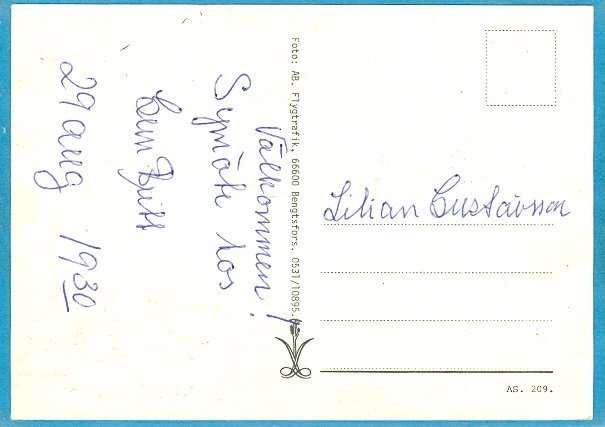 Välkommen!
Symöte hos
Gun Britt
29 aug 19 30
Foto: AB. Flygtrafik, 66600 Bengtsfors. 0531/10895.
Lilian Gustavsson
AS. 209.